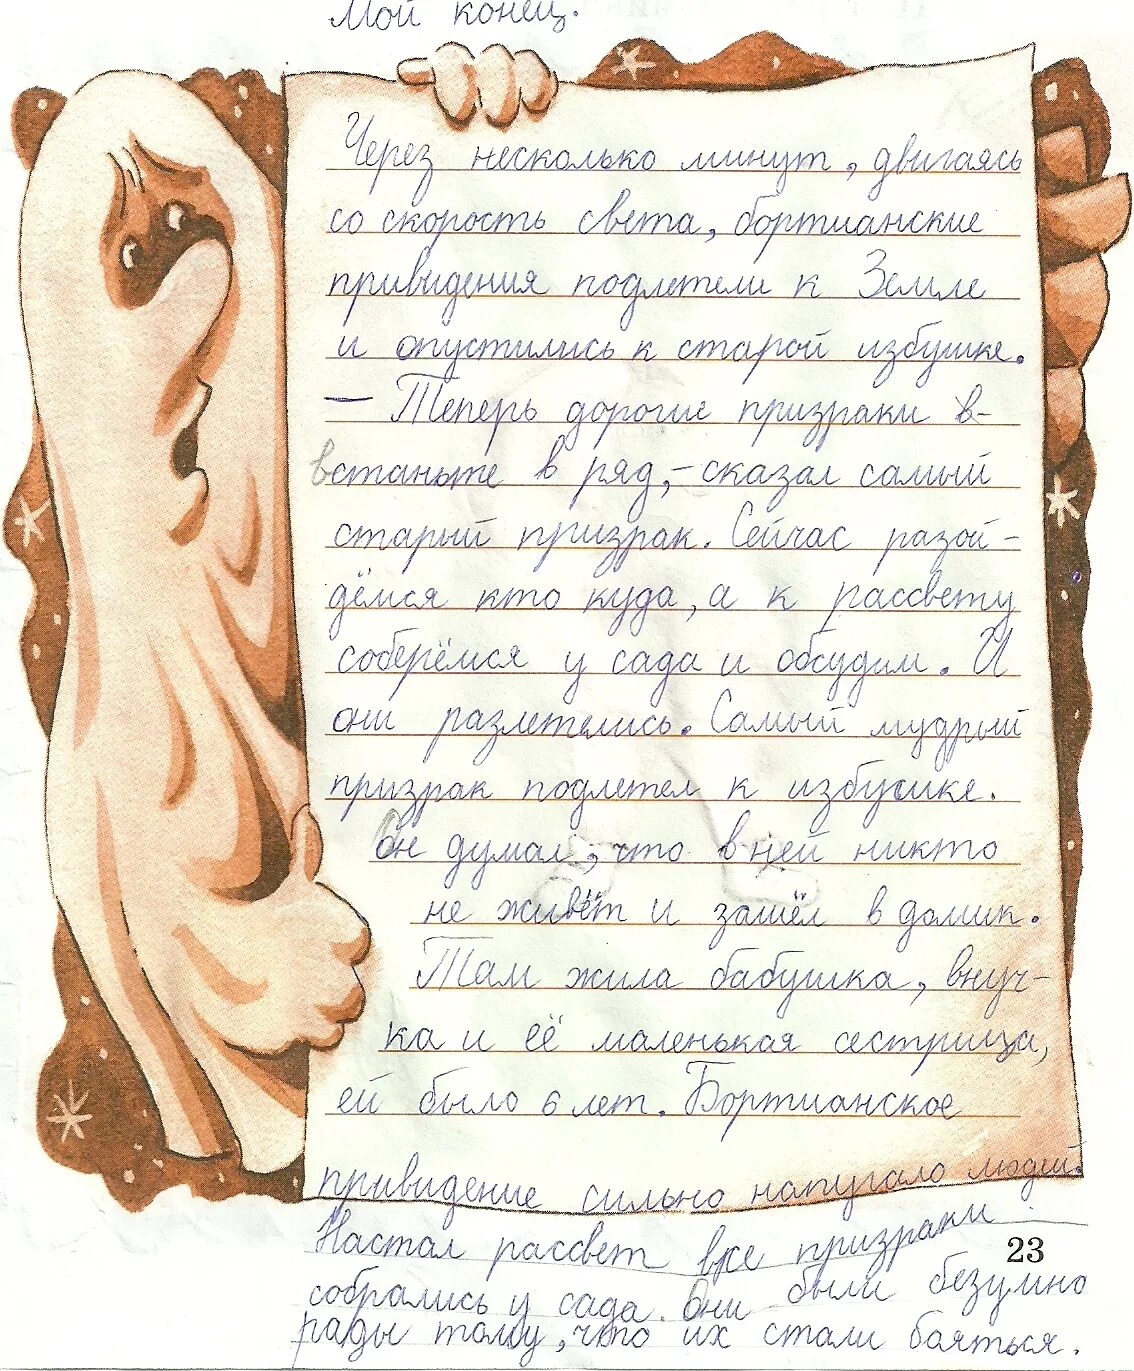 Мой конец.
Через несколько минут, двигаясь
со скорость света, бортианские
привидения подлетели к Земле
и опустились к старой избушке.
— Теперь дорогие призраки в-
встаньте в ряд,- сказал самый
старый призрак. Сейчас разой-
дёмся кто куда, а к рассвету
соберёмся у сада и обсудим. И
они разлетелись. Самый мудрый
призрак подлетел к избушке.
Он думал, что в ней никто
не живёт и зашёл в домик.
Там жила бабушка, внуч-
ка и её маленькая сестрица,
ей было 6 лет. Бортианское
привидение сильно напугало людей.
Настал рассвет все призраки
23
собрались у сада. Они были безумно
рады тому, что их стали бояться.